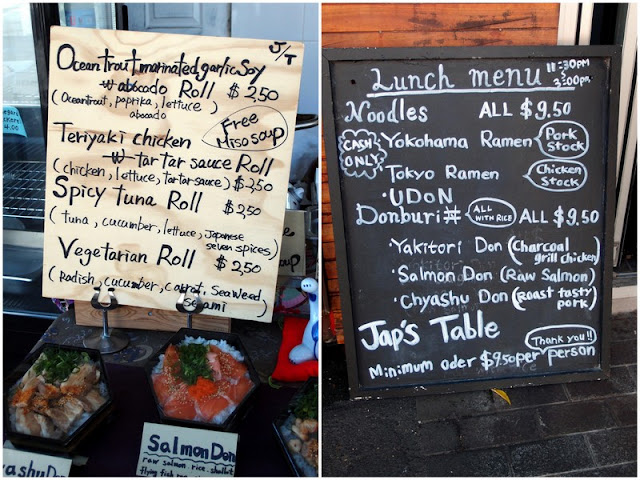 J/T
Ocean trout marinated garlic soy
w abocado Roll $2,50
(Oceantrout, paprika, lettuce,
abocado)
Free
Miso soup
Teriyaki chicken
w tar tar sauce Roll
(chicken, lettuce, tartar sauce) $2,50
Spicy tuna Roll $2,50
(tuna, cucumber, lettuce, Japanese
seven spices)
Vegetarian Roll
$2,50
(Radish, cucumber, carrot, Seaweed,
sesami)
4.00
soup
Salmon Don
raw salmon rice
flying fish
yashu Don
Lunch menu 11:30PM
3:00PM
Noodles ALL $9.50
CASH
ONLY
Yokohama Ramen Pork
Stock
Tokyo Ramen Chicken
Stock
・UDoN
Donburi丼 ALL
WITH RICE ALL $9.50
Yakitori Don (Charcoal
grill chicken)
・Salmon Don (Raw Salmon)
・Chyashu Don (Roast tasty
pork)
Jap's Table
Thank you!!
Minimum oder $9.50 per person